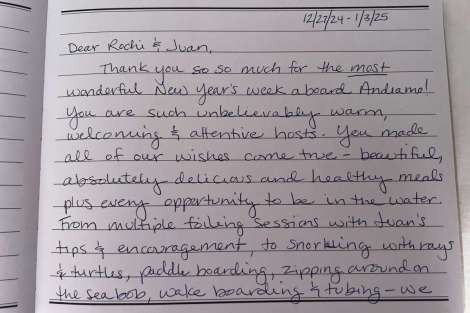 12/27/24 - 1/3/25
Dear Rochi & Juan,
Thank you so so much for the most
wonderful New Year's week aboard Andiamo!
You are such unbelievably warm,
welcoming & attentive hosts. You made
all of our wishes come true - beautiful,
absolutely delicious and healthy meals
plus every opportunity to be in the water.
From multiple foiling sessions with Juan's
tips & encouragement, to snorkling with rays
& turtles, paddle boarding, zipping around on
the seabob, wake boarding & tubing - we